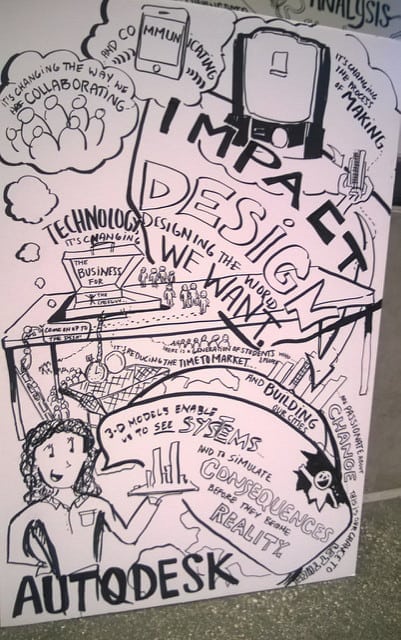 ANALYSIS
AND COMMUNICATING
IT'S CHANGING THE WAY WE
ARE COLLABORATING
IT'S CHANGING
THE PROCESS
OF MAKING
IMPACT
DESIGN
TECHNOLOGY
IT'S CHANGING
THE
BUSINESS
FOR
THE
DESIGNING THE WORLD
WE WANT.
COME ON UP TO
THE DESK!
THERE IS A GENERATION OF STUDENTS WHO
IT'S REDUCING THE TIME TO MARKET...
AND BUILDING
OUR CITIES
ARE PASSIONATE ABOUT
CHANGE
THIS IS OUR CHANCE TO
3-D MODELS ENABLE
US TO SEE SYSTEMS...
AND TO SIMULATE
CONSEQUENCES
BEFORE THEY BECOME
REALITY.
AUTODESK